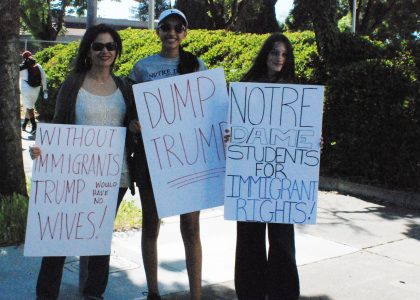 WITHOUT
IMMIGRANTS
TRUMP WOULD
HAVE NO
WIVES!
DUMP
TRUMP!
NOTRE
DAME
STUDENTS
FOR
IMMIGRANT
RIGHTS!
NOTRE DAME